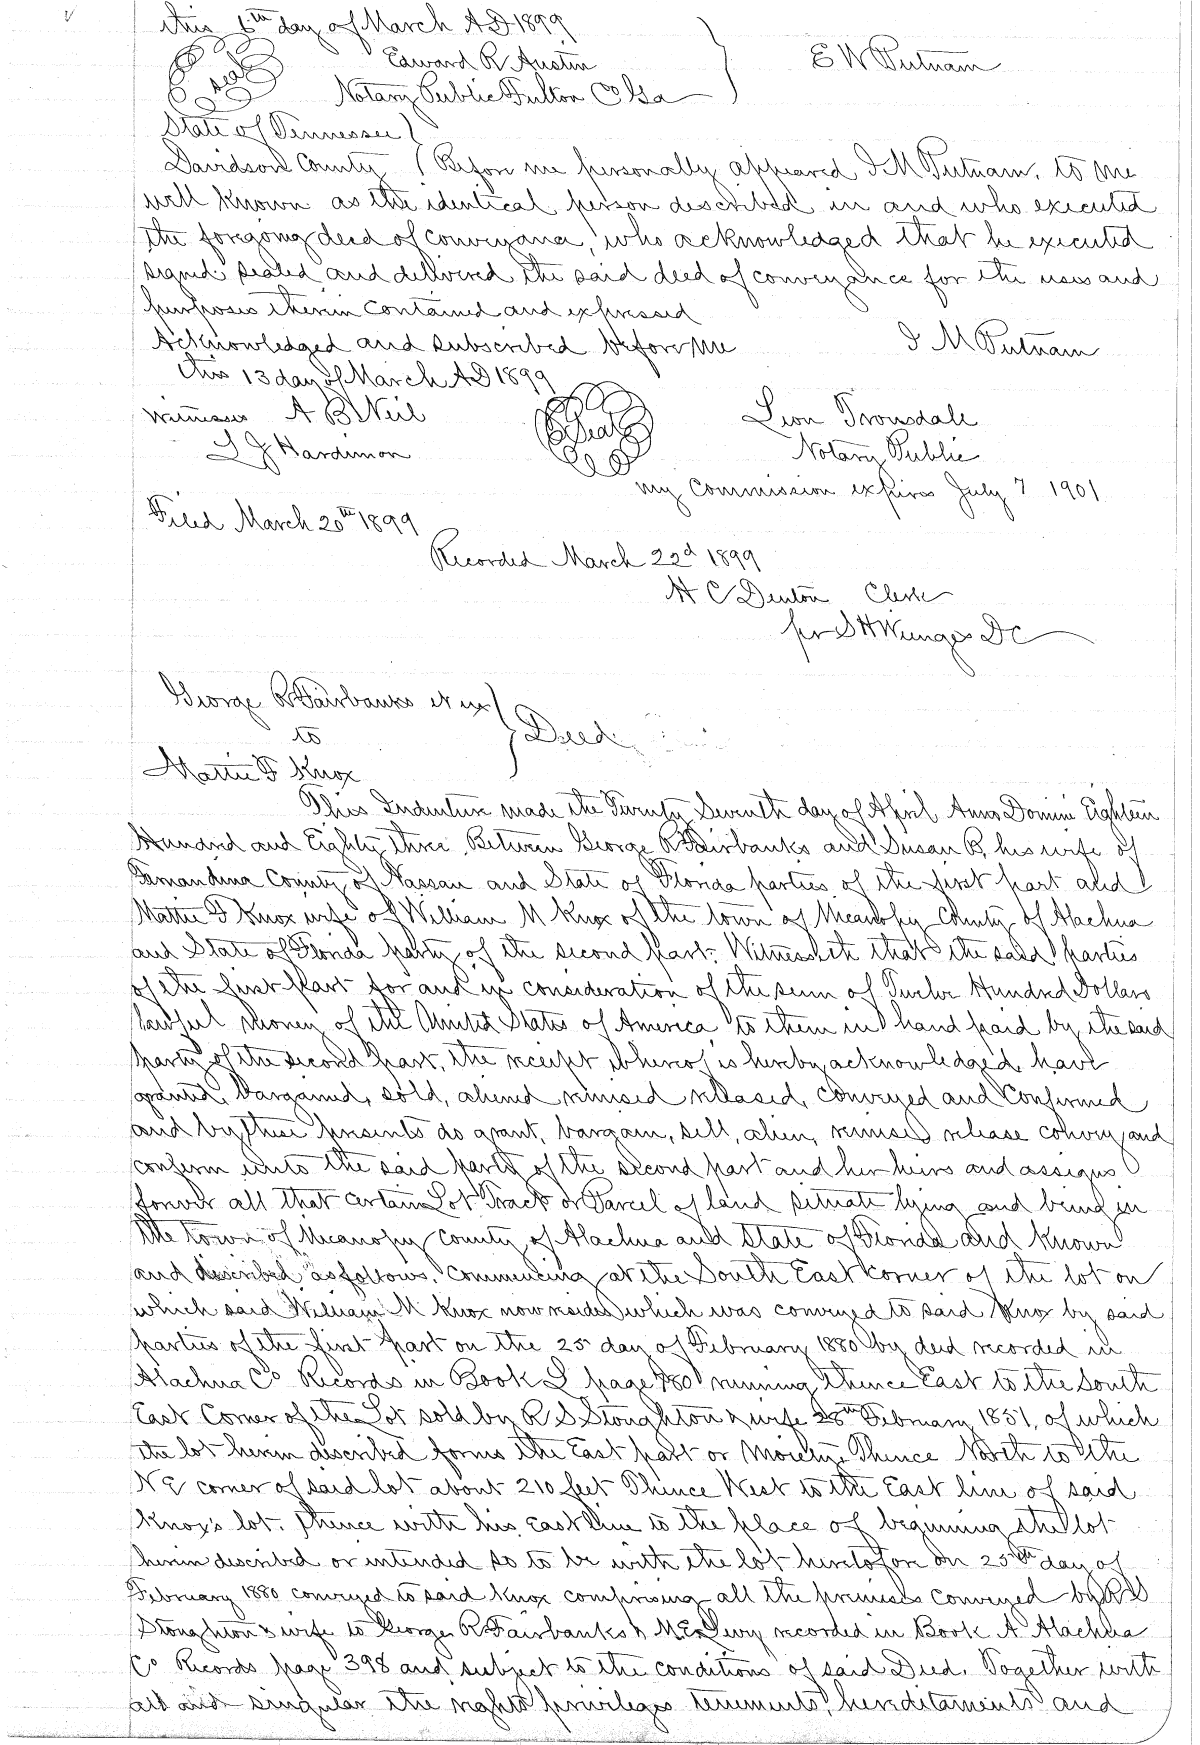 this 6th day of March AD 1899
Edward R Austin
E W Putnam
seal
Notary Public Fulton Co Ga
State of Tennessee
Davidson County Before me personally appeared I M Putnam, to me
well known as the identical person described in and who executed
the forgoing deed of conveyance, who acknowledged that he executed
signed sealed and delivered the said deed of conveyance for the uses and
purposes therin contained and expressed
Acknowledged and subscribed before me
I M Putnam
this 13 day of March AD 1899
Witnesses A B Neil
Seal
Leon Trousdale
L J Hardimon
Notary Public
my commission expires July 7 1901
Filed March 20th 1899
Recorded March 22d 1899
H C Denton Clerk
per S H DC
George R Fairbanks et ux
to
Deed
Mattie F Knox
This Indenture made the Twenty Seventh day of April Anno Domini Eighteen
Hundred and Eighty three Between George R Fairbanks and Susan B, his wife of
Fernandina County of Nassau and State of Florida parties of the first part and
Mattie F Knox wife of William M Knox of the town of Micanopy County of Alachua
and State of Florida party of the second part: Witnesseth that the said parties
of the first part for and in consideration of the sum of Twelve Hundred Dollars
lawful money of the United States of America to them in hand paid by the said
party of the second part, the receipt whereof is hereby acknowledged, have
granted, bargained, sold, aliened remised released, conveyed and Confirmed
and by these presents do grant, bargain, sell, alien, remise release convey and
confirm unto the said party of the second part and her heirs and assigns
forever all that certain Lot Tract or Parcel of land situate lying and being in
the town of Micanopy County of Alachua and State of Florida and known
and described as follows. Commencing at the South East corner of the lot on
which said William M Knox now resides which was conveyed to said Knox by said
parties of the first part on the 25 day of February 1880 by deed recorded in
Alachua Co Records in Book L page running thence East to the South
East Corner of the Lot sold by R S Stoughton & wife 28th February 1851, of which
the lot herin described forms the East part or Moiety, Thence North to the
N E corner of said lot about 210 feet Thence West to the East line of said
Knox's lot. Thence with his East line to the place of beginning the lot
herin described or intended so to be with the lot heretofore on 25th day of
February 1880 conveyed to said Knox comprising all the premises conveyed by R S
Stoughton & wife to George R Fairbanks & recorded in Book A Alachua
Co Records page 398 and subject to the conditions of said Deed. Together with
all and singular the rights privileges tenements, hereditaments and